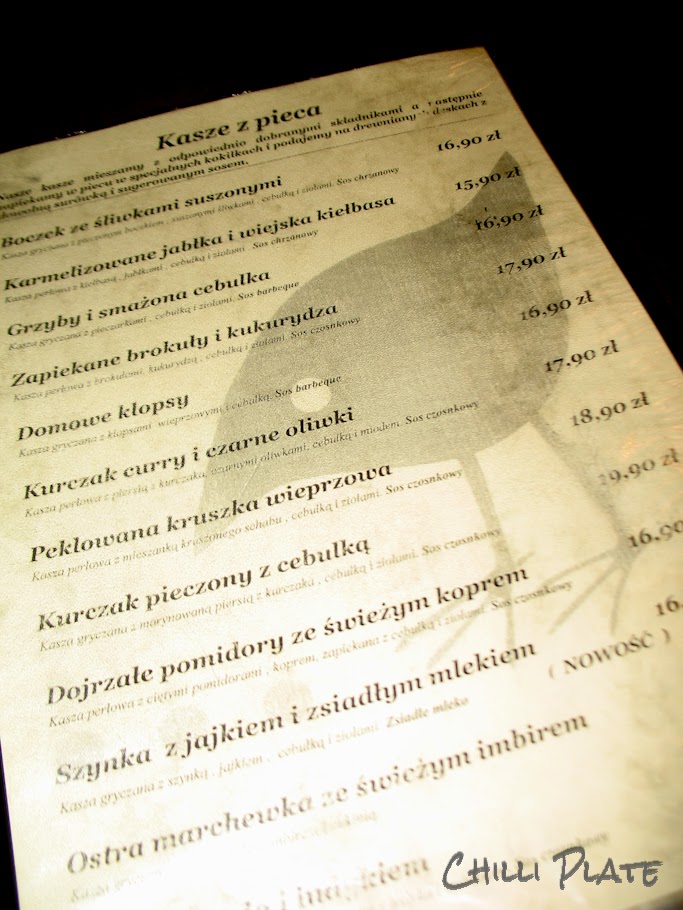 Kasze z pieca
Nasze kasze mieszamy z odpowiednio dobranymi składnikami a następnie
zapiekamy w piecu w specjalnych kokilkach i podajemy na drewnianych deskach z
dowolną surówką i sugerowanym sosem.
Boczek ze śliwkami suszonymi 16,90 zł
Kasza gryczana z pieczonym boczkiem, suszonymi śliwkami, cebulką i ziołami. Sos chrzanowy
Karmelizowane jabłka i wiejska kiełbasa 15,90 zł
Kasza perłowa z kiełbasą, jabłkami, cebulką i ziołami. Sos chrzanowy
Grzyby i smażona cebulka 16,90 zł
Kasza gryczana z pieczarkami, cebulką i ziołami. Sos barbeque
Zapiekane brokuły i kukurydza 17,90 zł
Kasza perłowa z brokułami, kukurydzą, cebulką i ziołami. Sos czosnkowy
Domowe klopsy 16,90 zł
Kasza gryczana z klopsami wieprzowymi i cebulką. Sos barbeque
Kurczak curry i czarne oliwki 17,90 zł
Kasza perłowa z piersią z kurczaka, czarnymi oliwkami, cebulką i miodem. Sos czosnkowy
Peklowana kruszka wieprzowa 18,90 zł
Kasza perłowa z mieszanką kruszonego schabu, cebulką i ziołami. Sos czosnkowy
Kurczak pieczony z cebulką 19,90 zł
Kasza gryczana z marynowaną piersią z kurczaka, cebulką i ziołami. Sos czosnkowy
Dojrzałe pomidory ze świeżym koprem 16,90
Kasza perłowa z ciętymi pomidorami, koprem, zapiekana z cebulką i ziołami. Sos czosnkowy
Szynka z jajkiem i zsiadłym mlekiem 16,
Kasza gryczana z szynką, jajkiem, cebulką i ziołami. Zsiadłe mleko
( NOWOŚĆ )
Ostra marchewka ze świeżym imbirem
Kasza
i
CHILLI PLATE